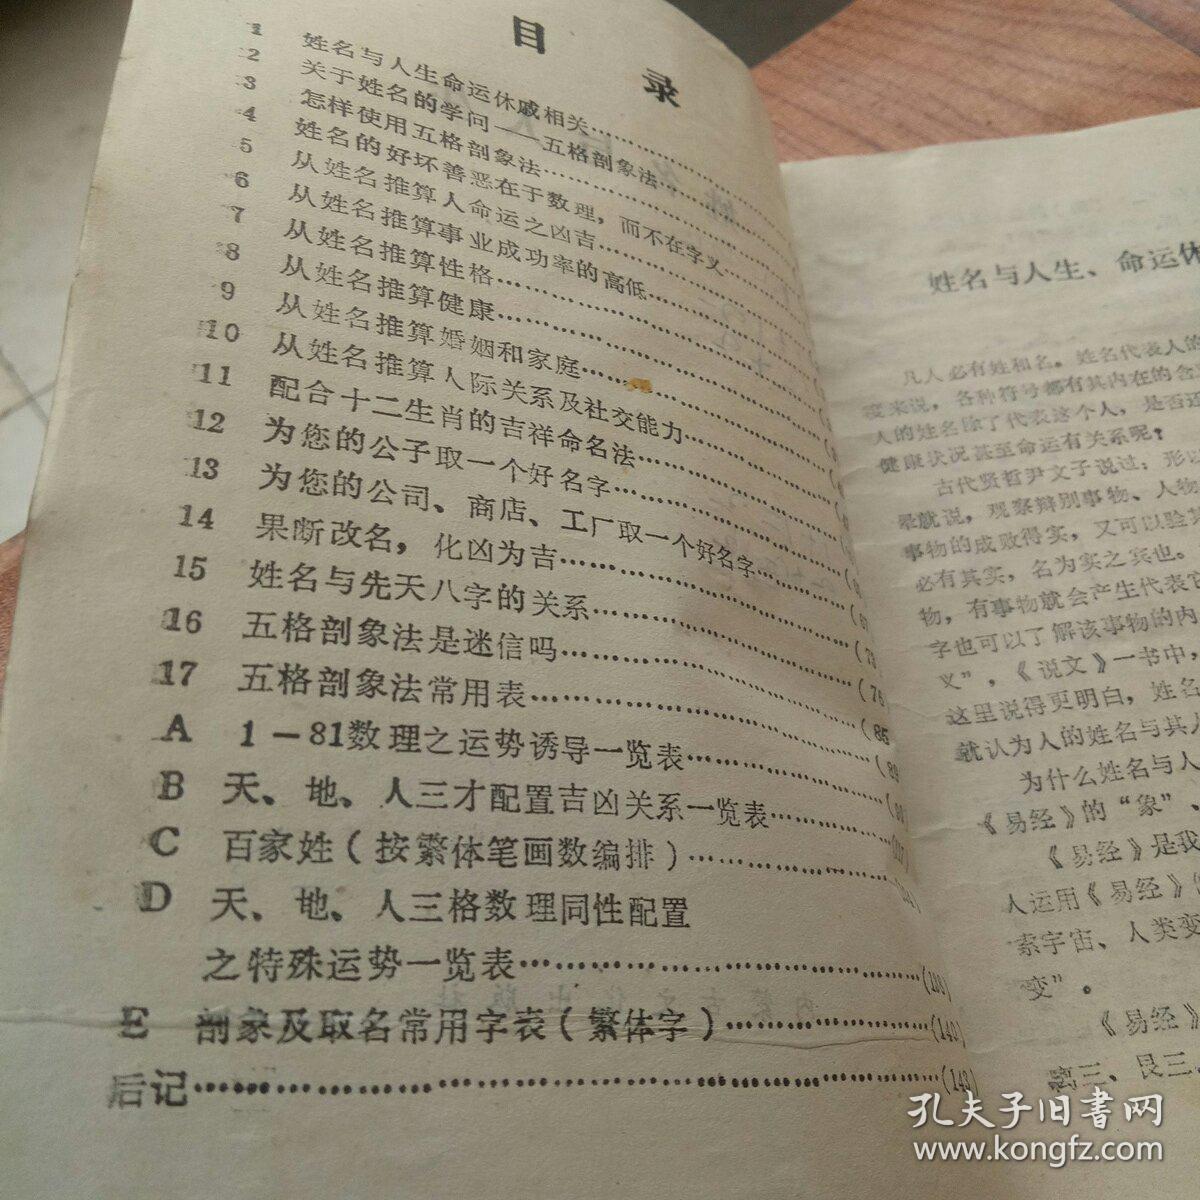 目 录
1 姓名与人生命运休戚相关
2 关于姓名的学问——五格剖象法
3 怎样使用五格剖象法
4 姓名的好坏善恶在于数理，而不在字义
5 从姓名推算人命运之凶吉
6 从姓名推算事业成功率的高低
7 从姓名推算性格
8 从姓名推算健康
9 从姓名推算婚姻和家庭
10 从姓名推算人际关系及社交能力
11 配合十二生肖的吉祥命名法
12 为您的公子取一个好名字
13 为您的公司、商店、工厂取一个好名字
14 果断改名，化凶为吉
15 姓名与先天八字的关系
16 五格剖象法是迷信吗
17 五格剖象法常用表
A 1－81数理之运势诱导一览表
B 天、地、人三才配置吉凶关系一览表
C 百家姓（按繁体笔画数编排）
D 天、地、人三格数理同性配置
之特殊运势一览表
E 剖象及取名常用字表（繁体字）
后记
姓名与人生、命运休
凡人必有姓和名。姓名代表人的
变来说，各种符号都有其内在的含
人的姓名除了代表这个人，是否还
健康状况甚至命运有关系呢？
古代贤哲尹文子说过：形以
就说，观察辩别事物、人物
事物的成败得实，又可以验其
必有其实，名为实之宾也。
物，有事物就会产生代表它
字也可以了解该事物的内
义”，《说文》一书中，
这里说得更明白，姓名
就认为人的姓名与其人
为什么姓名与人
《易经》的“象”、
《易经》是我
人运用《易经》
索宇宙、人类变
变”。
《易经》
离三、艮三、
孔夫子旧书网
www.kongfz.com